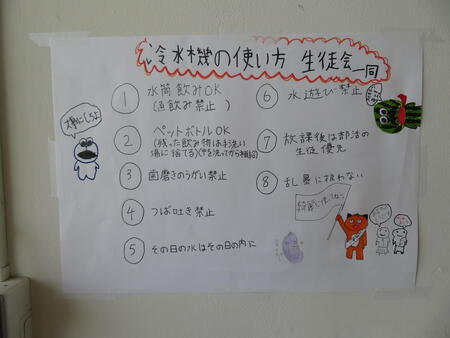 冷水機の使い方 生徒会一同
① 水筒飲みOK
(直飲み禁止)
② ペットボトルOK
(残った飲み物は手洗い
場に捨てる)(中を洗ってから補給)
③ 歯磨きのうがい禁止
④ つば吐き禁止
⑤ その日の水はその日の内に
⑥ 水遊び禁止
⑦ 放課後は部活の
生徒優先
⑧ 乱暴に扱わない
大事にしろよ